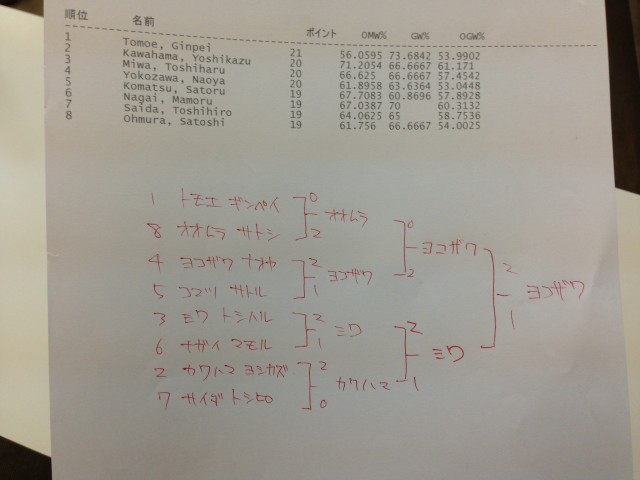 順位 名前 ポイント OMW% GW% OGW%
1 Tomoe, Ginpei 21 56.0595 73.6842 53.9902
2 Kawahama, Yoshikazu 20 71.2054 66.6667 61.171
3 Miwa, Toshiharu 20 66.625 66.6667 57.4542
4 Yokozawa, Naoya 20 61.8958 63.6364 53.0448
5 Komatsu, Satoru 19 67.7083 60.8696 57.8928
6 Nagai, Mamoru 19 67.0387 70 60.3132
7 Saida, Toshihiro 19 64.0625 65 58.7536
8 Ohmura, Satoshi 19 61.756 66.6667 54.0025
1 トモエ ギンペイ 0
オオムラ
8 オオムラ サトシ 2
0 ヨコザワ 2
4 ヨコザワ ナオヤ 2
ヨコザワ
5 コマツ サトル 1
2 ヨコザワ 1
3 ミワ トシハル 2
ミワ
6 ナガイ マモル 1
2 ミワ 1
2 カワハマ ヨシカズ 2
カワハマ
7 サイダ トシヒロ 0